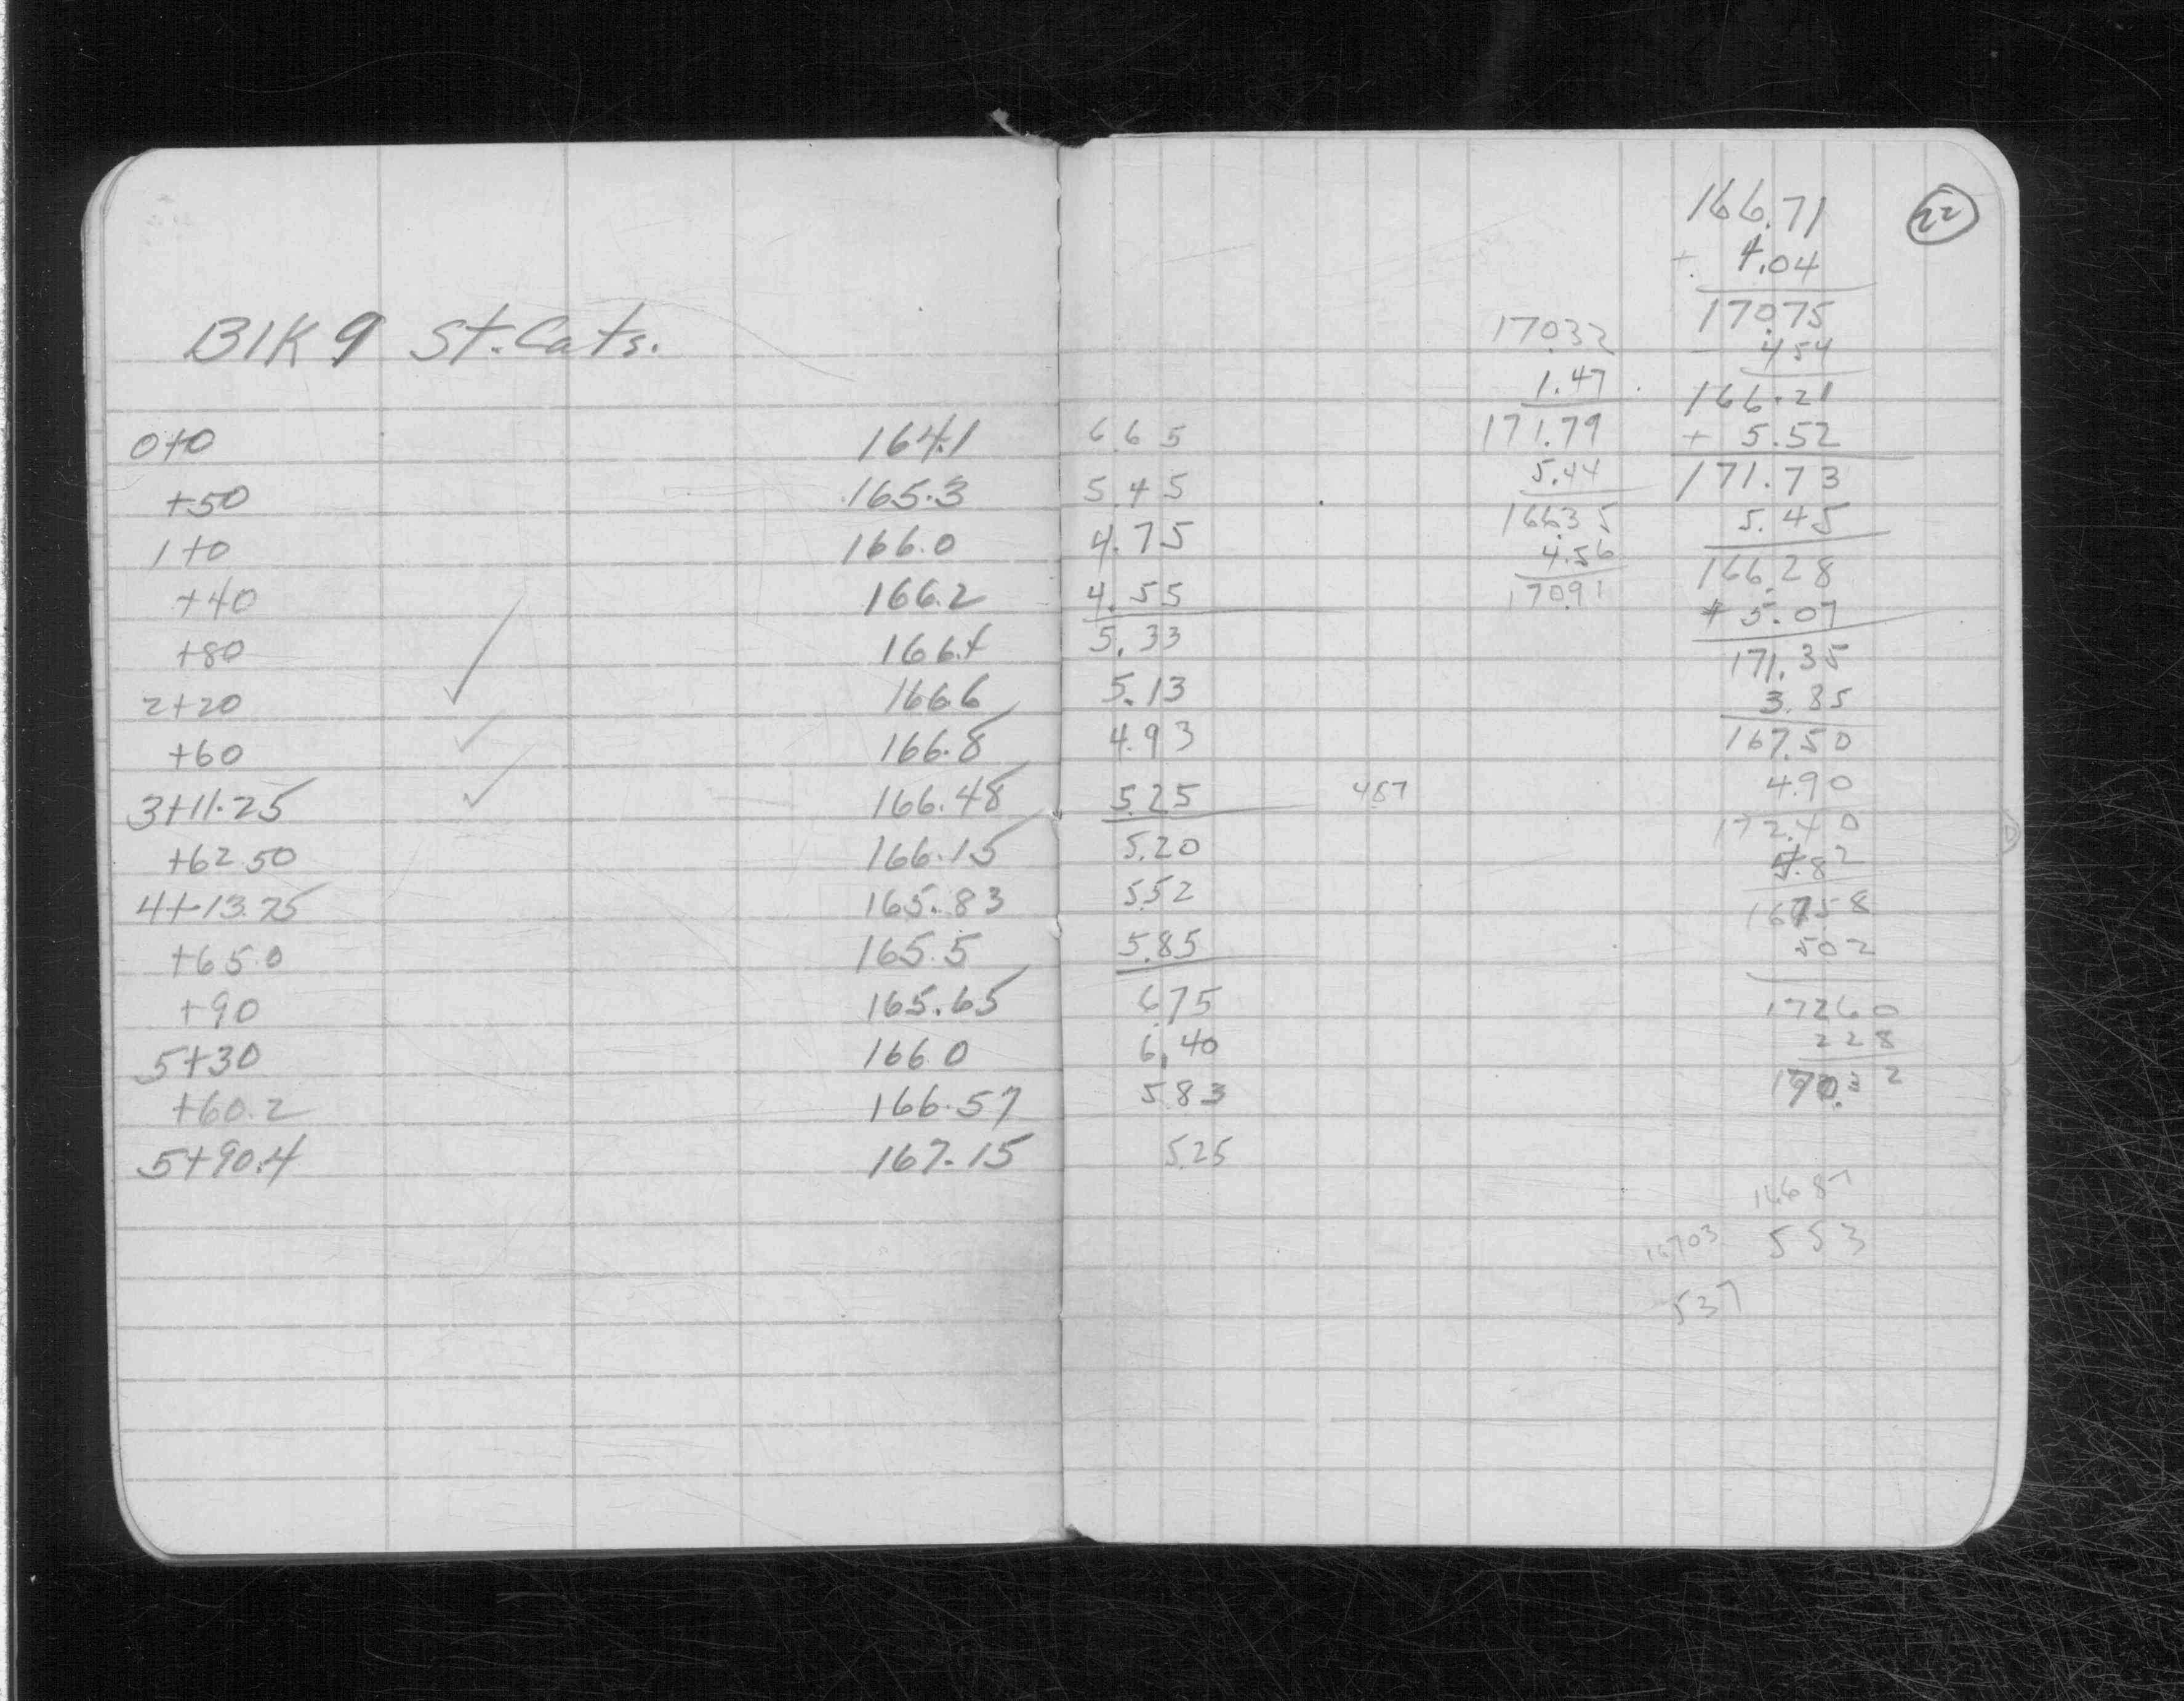 Blk 9 St. Cats.
0+0 164.1 6.65
+50 165.3 5.45
1+0 166.0 4.75
+40 166.2 4.55
+80 166.4 5.33
2+20 166.6 5.13
+60 166.8 4.93
3+11.25 166.48 5.25 487
+62.50 166.15 5.20
4+13.75 165.83 5.52
+65.0 165.5 5.85
+90 165.65 6.75
5+30 166.0 6.40
+60.2 166.57 5.83
5+90.4 167.15 5.25
170.32
1.47
171.79
5.44
166.35
4.56
170.91
22
166.71
+ 4.04
170.75
4.54
166.21
+ 5.52
171.73
5.45
166.28
+ 5.07
171.35
3.85
167.50
4.90
172.40
4.82
167.58
5 02
172 60
2 28
170.32
166 87
167 03 5 53
5 37